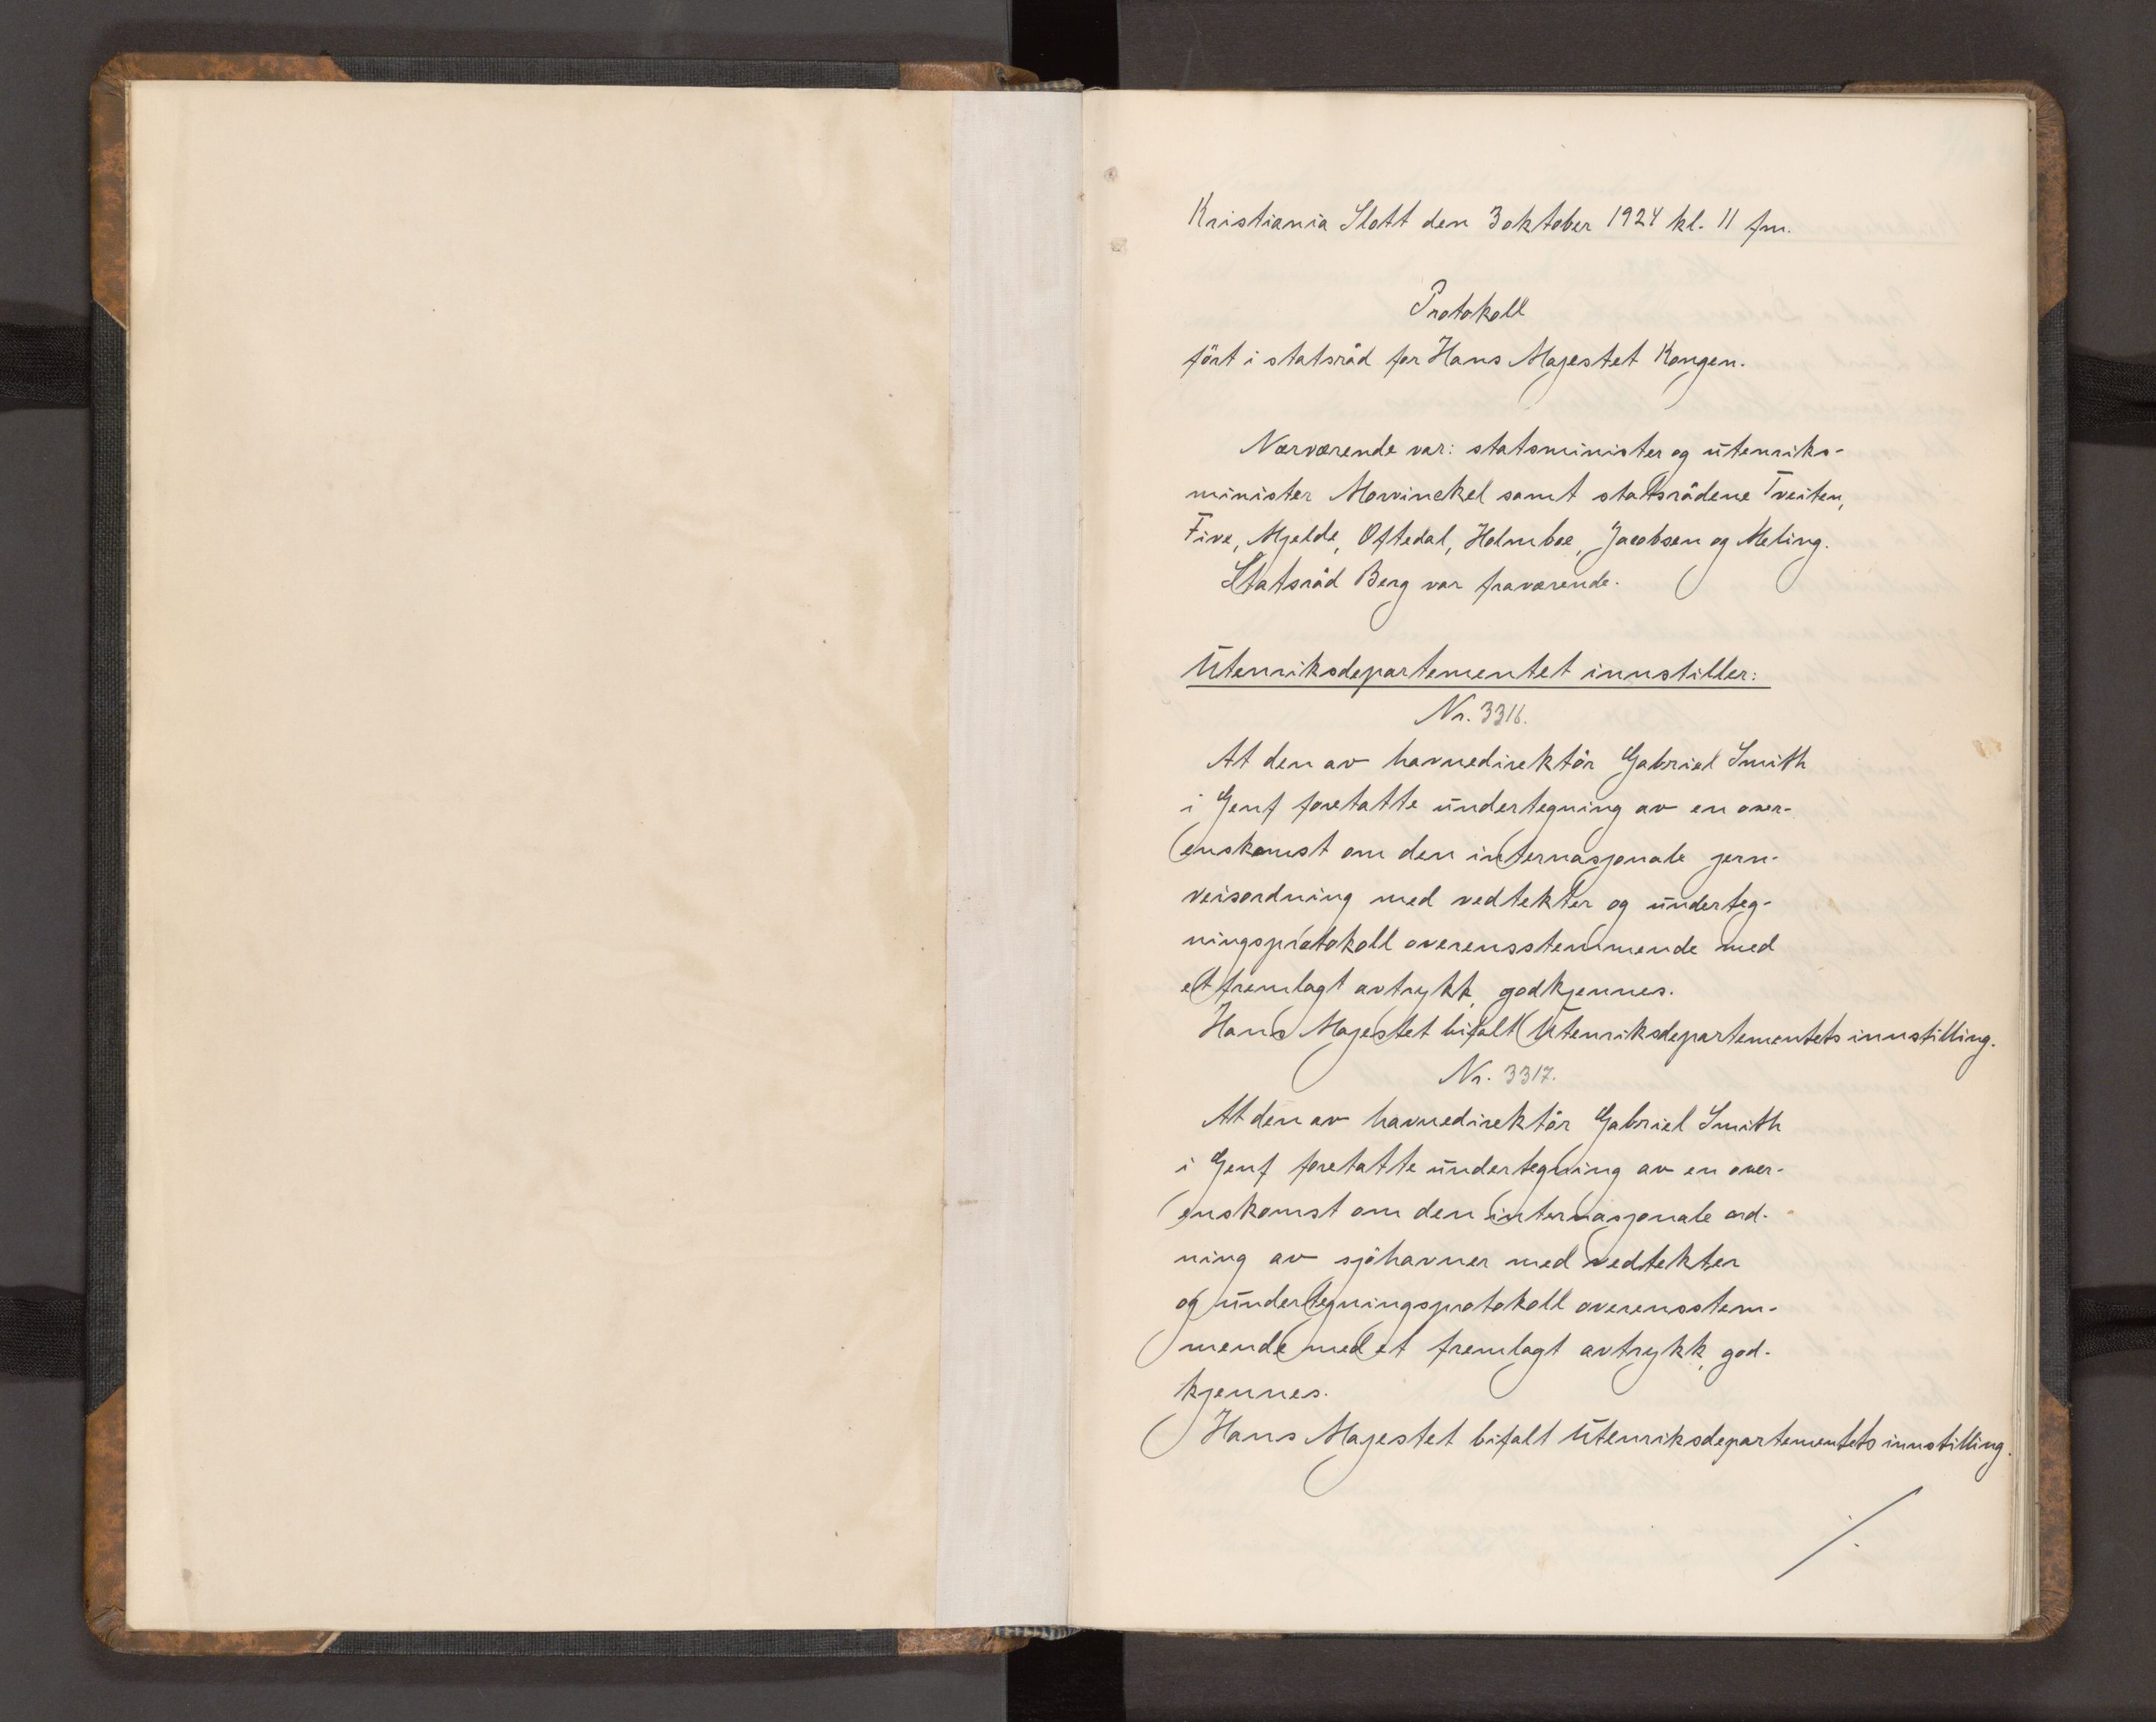 Kristiania Slott den 3 oktober 1924 kl. 11 fm.
Protokoll
fört i statsråd for Hans Majestet Kongen.
Nærværende var: statsminister og utenriks-
minister Mowinckel samt statsrådene Tveiten,
Five, Mjelde, Oftedal, Holmboe, Jacobsen og Meling.
Statsråd Berg var fraværende.
Utenriksdepartementet innstiller:
Nr. 3316.
At den av havnedirektör Gabriel Smith
i Genf foretatte undertegning av en over-
enskomst om den internasjonale jern-
veisordning med vedtekter og underteg-
ningsprotokoll overensstemmende med
et fremlagt avtrykk, godkjennes.
Hans Majestet bifalt Utenriksdepartementets innstilling.
Nr. 3317.
At den av havnedirektör Gabriel Smith
i Genf foretatte undertegning av en over-
enskomst om den internasjonale ord-
ning av sjöhavner med vedtekter
og undertegningsprotokoll overensstem-
mende med et fremlagt avtrykk, god-
kjennes.
Hans Majestet bifalt Utenriksdepartementets innstilling.
./.